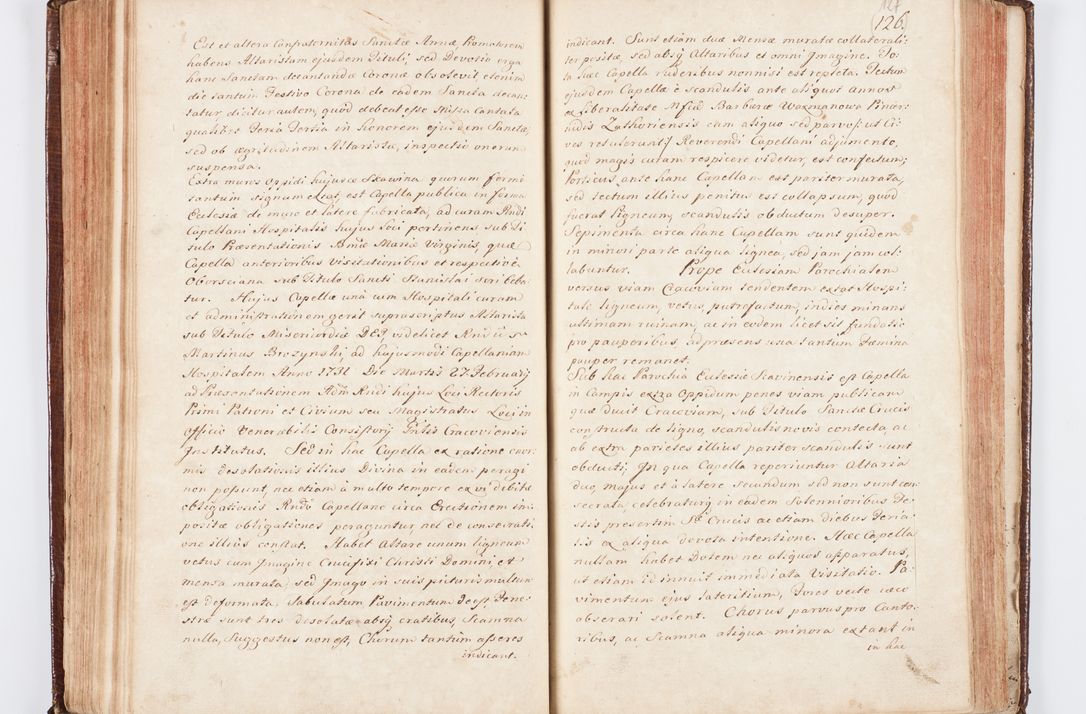 Est et altera Confraternitas Sanctæ Annæ, Promotorem
habens Altaristam ejusdem Tituli, sed Devotio erga
hanc Sanctam decantandæ Coronæ obsolevit etenim
die tantum Festivo Corona de eadem Sancta decan-
tatur dicitur autem, quod debeat esse Missa Cantata
qualibet Feria Tertia in honorem ejusdem Sanctæ,
sed ob ægritudinem Altaristæ, inspectio onerum
suspensa.
Extra muros Oppidi hujusce Skawina quorum formi
tantum signum extat, est Capella publica in forma
Ecclesiæ de muro et latere fabricata, ad curam Rndi
Capellani Hospitalis hujus loci pertinens, sub Ti
tulo Præsentationis Bmæ Mariæ Virginis, quæ
Capella anterioribus visitationibus et respectivè
Oborsciana sub Titulo Sancti Stanislai scribeba
tur. Hujus Capellæ unà cum Hospitali curam
et administrationem gerit suprascriptus Altarista
sub Titulo Misericordiæ DEI, videlicet Rndus
Martinus Brozynski, ad hujusmodi Capellaniam
Hospitalem Anno 1731 Die Martis 27 Februarij
ad Præsentationem Adm Rndi hujus Loci Rectoris
Primi Patroni et Civium seu Magistratus Loci in
officio Venerabilis Consistorij Gnlis Cracoviensis
Institutus. Sed in hac Capella ex ratione enor-
mis desolationis illius Divina in eadem peragi
non possunt, nec etiam à multo tempore ex vi debitæ
obligationis Rndo Capellano circa Erectionem im-
positæ obligationes peraguntur, nec de consecrati
one illius constat. Habet Altare unum ligneum
vetus cum Imagine Crucifixi Christi Domini, et
mensa murata, sed Imago in suis picturis multum
est deformata, Tabulatum Pavimentum deest, Fene-
stræ sunt tres desolatæ absq cratibus, Scamna
nulla, Suggestus non est, Chorum tantum asseres
indicant.
127
126.
indicant. Sunt etiam duæ Mensæ muratæ collaterali-
ter positæ, sed absq Altaribus et omni Imagine. To-
ta hæc Capella ruderibus nonnisi est repleta. Tectum
ejusdem Capellæ è scandulis ante aliquot annos
ex liberalitate Mfcæ Barbaræ Waxmanowa Pinær-
nidis Zathoriensis cum aliquo sed parvo, ut Ci-
ves retulerunt, Reverendi Capellani adjumento,
quod magis curam respicere videtur, est confectum;
Porticus ante hanc Capellam est pariter murata,
sed tectum illius penitus est collapsum, quod
fuerat ligneum, scandulis obductum desuper.
Sepimenta circa hanc Capellam sunt quidem
in minori parte aliqua lignea, sed jam jam col-
labuntur. Prope Ecclesiam Parochialem
versus viam Cracoviam tendentem extat Hospi-
tale ligneum, vetus, putrefactum, indies minans
ultimam ruinam, ac in eodem licet sit fundatio
pro pauperibus, ad præsens una tantum Fæmina
pauper remanet.
Sub hac Parochia Ecclesiæ Skavinensis est Capella
in Campis extra Oppidum penes viam publicam
quæ ducit Cracoviam, sub Titulo Sanctæ Crucis
constructa de ligno, scandulis novis contecta, ac
ab extra parietes illius pariter scandulis sunt
obducti; In qua Capella reperiuntur Altaria
duo, majus et à latere secundum sed non sunt con-
secrata, celebraturq in eadem Solennioribus Fe-
stis præsertim Stæ Crucis ac etiam diebus Feria-
lis ex aliqua devota intentione. Hæc Capella
nullam habet Dotem nec aliquos apparatus,
ut etiam id innuit immediata Visitatio. Pa-
vimentum ejus lateritium, Fores vecte cæco
obserari solent. Chorus parvus pro Canto-
ribus, ac Scamna aliqua minora extant in
in hac